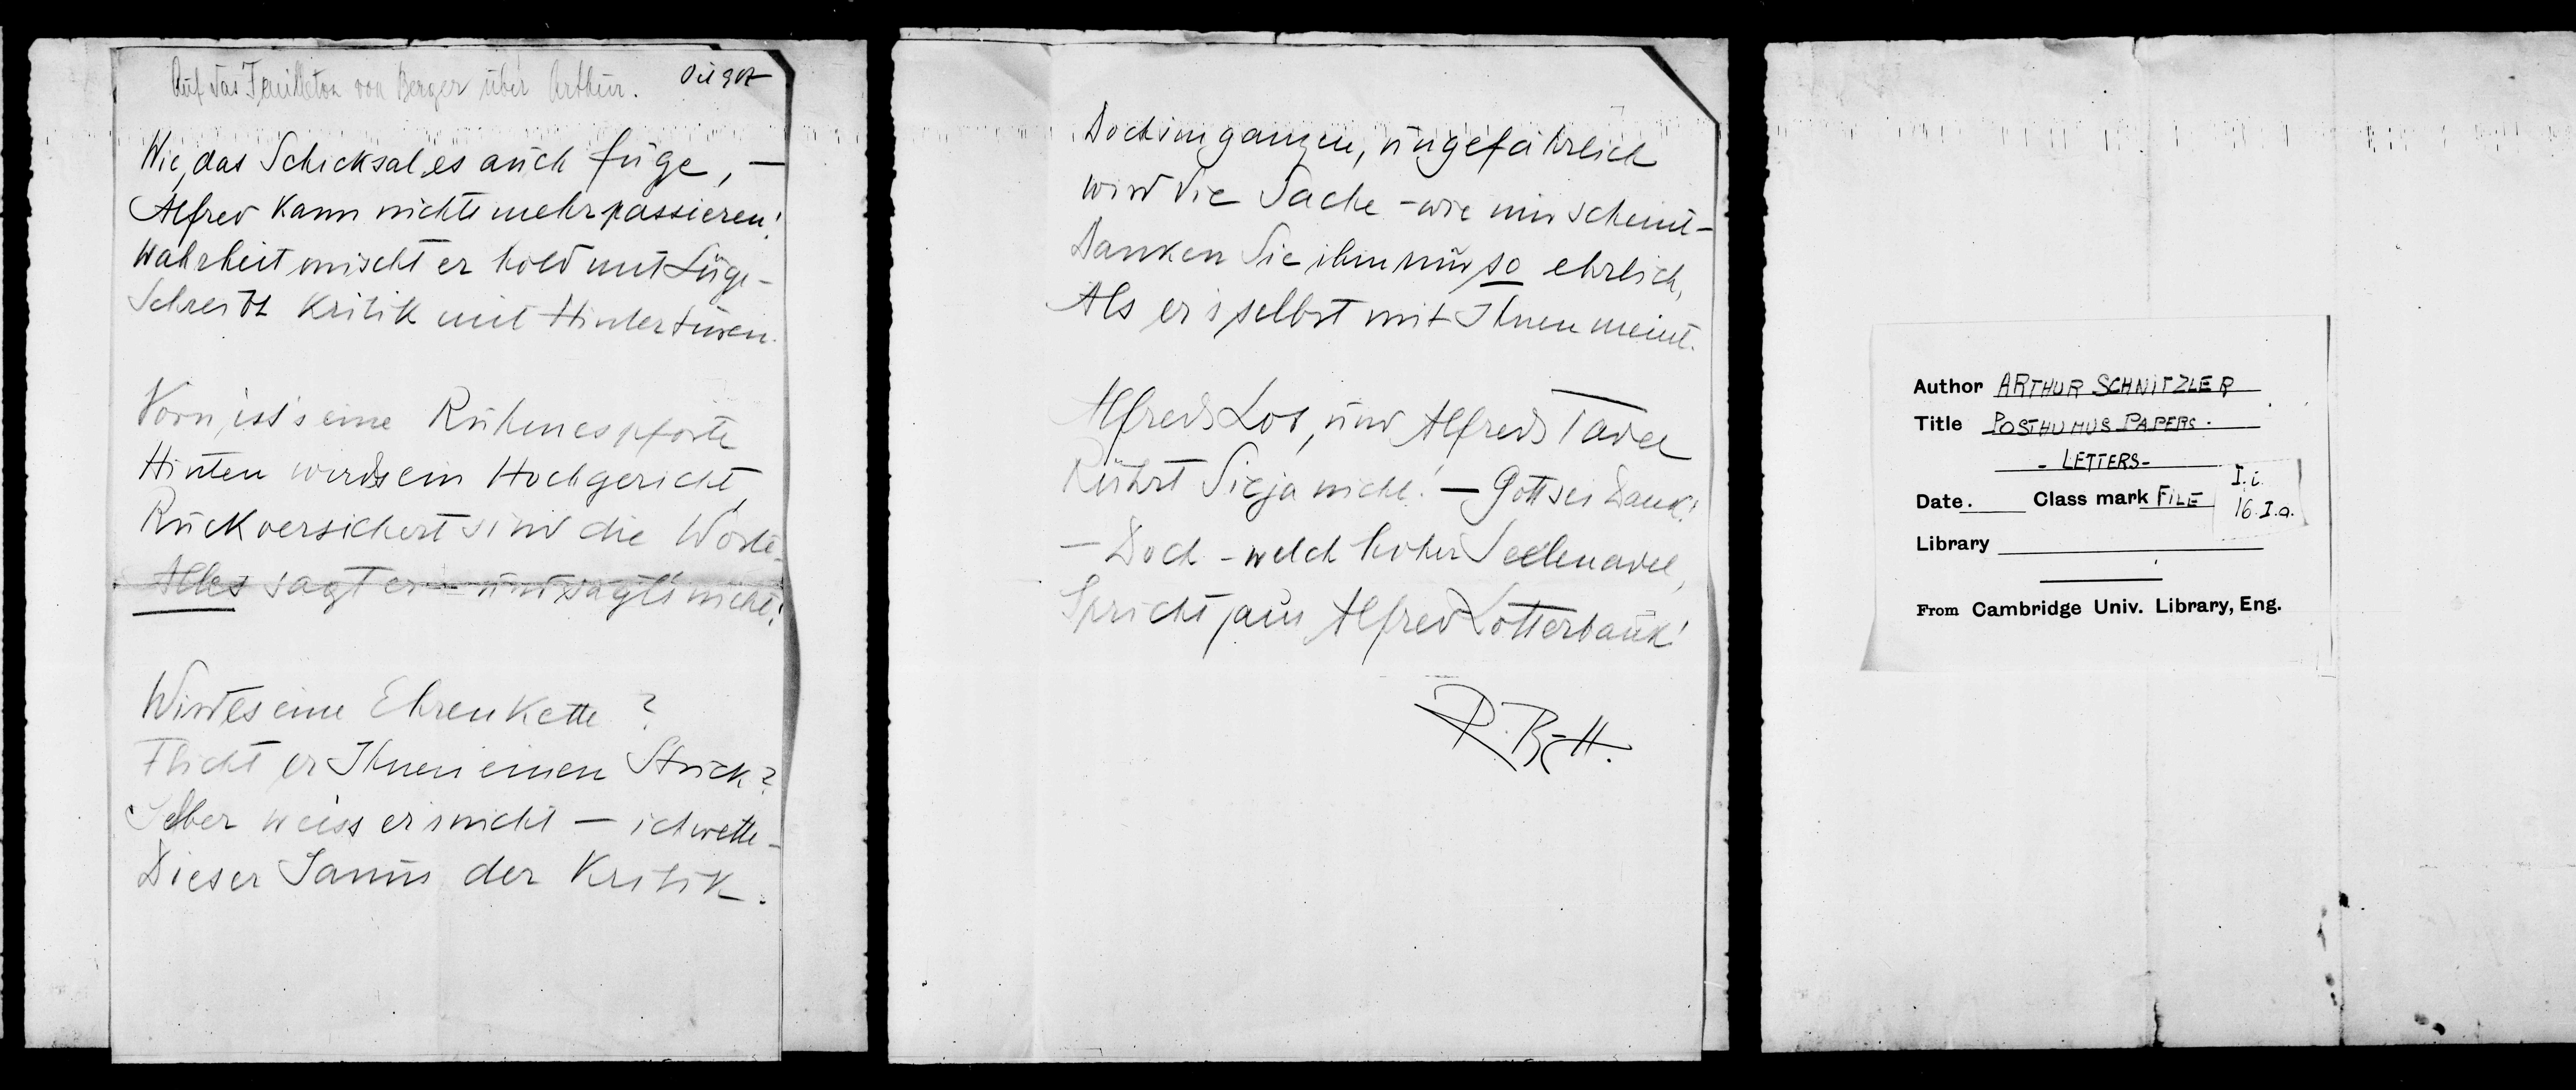 Auf das Feuilleton von Berger über Arthur.
Wie, das Schicksal, es auch füge, —
Alfred kann nichts mehr passieren!
Wahrheit mischt er hold mit Lüge –
Schreibt Kritik mit Hintertüren.
Vorn, ist's eine Ruhmespforte
Hinten wird's ein Hochgericht,
Rückversichert sind die Worte –
Alles sagt er – und sagt's nicht!
Wird es eine Ehrenkette?
Flicht er Ihnen einen Strick?
Selber weiss er's nicht – ich wette –
Dieser Janus der Kritik.
Doch im ganzen, ungefährlich
wird die Sache – wie mir scheint –
Danken Sie ihm nur so ehrlich,
Als er's selbst mit Ihnen meint.
Alfreds Lob, und Alfreds Tadel
Rührt Sie ja nicht! — Gott sei Dank!
— Doch – welch hoher Seelenadel,
Spricht aus Alfred Lotterbank!
R. B-H.
Author ARTHUR SCHNITZLER
Title POSTHUMUS PAPERS.
- LETTERS -
Date. Class mark FILE I.i.
16.I.a.
Library
From Cambridge Univ. Library, Eng.